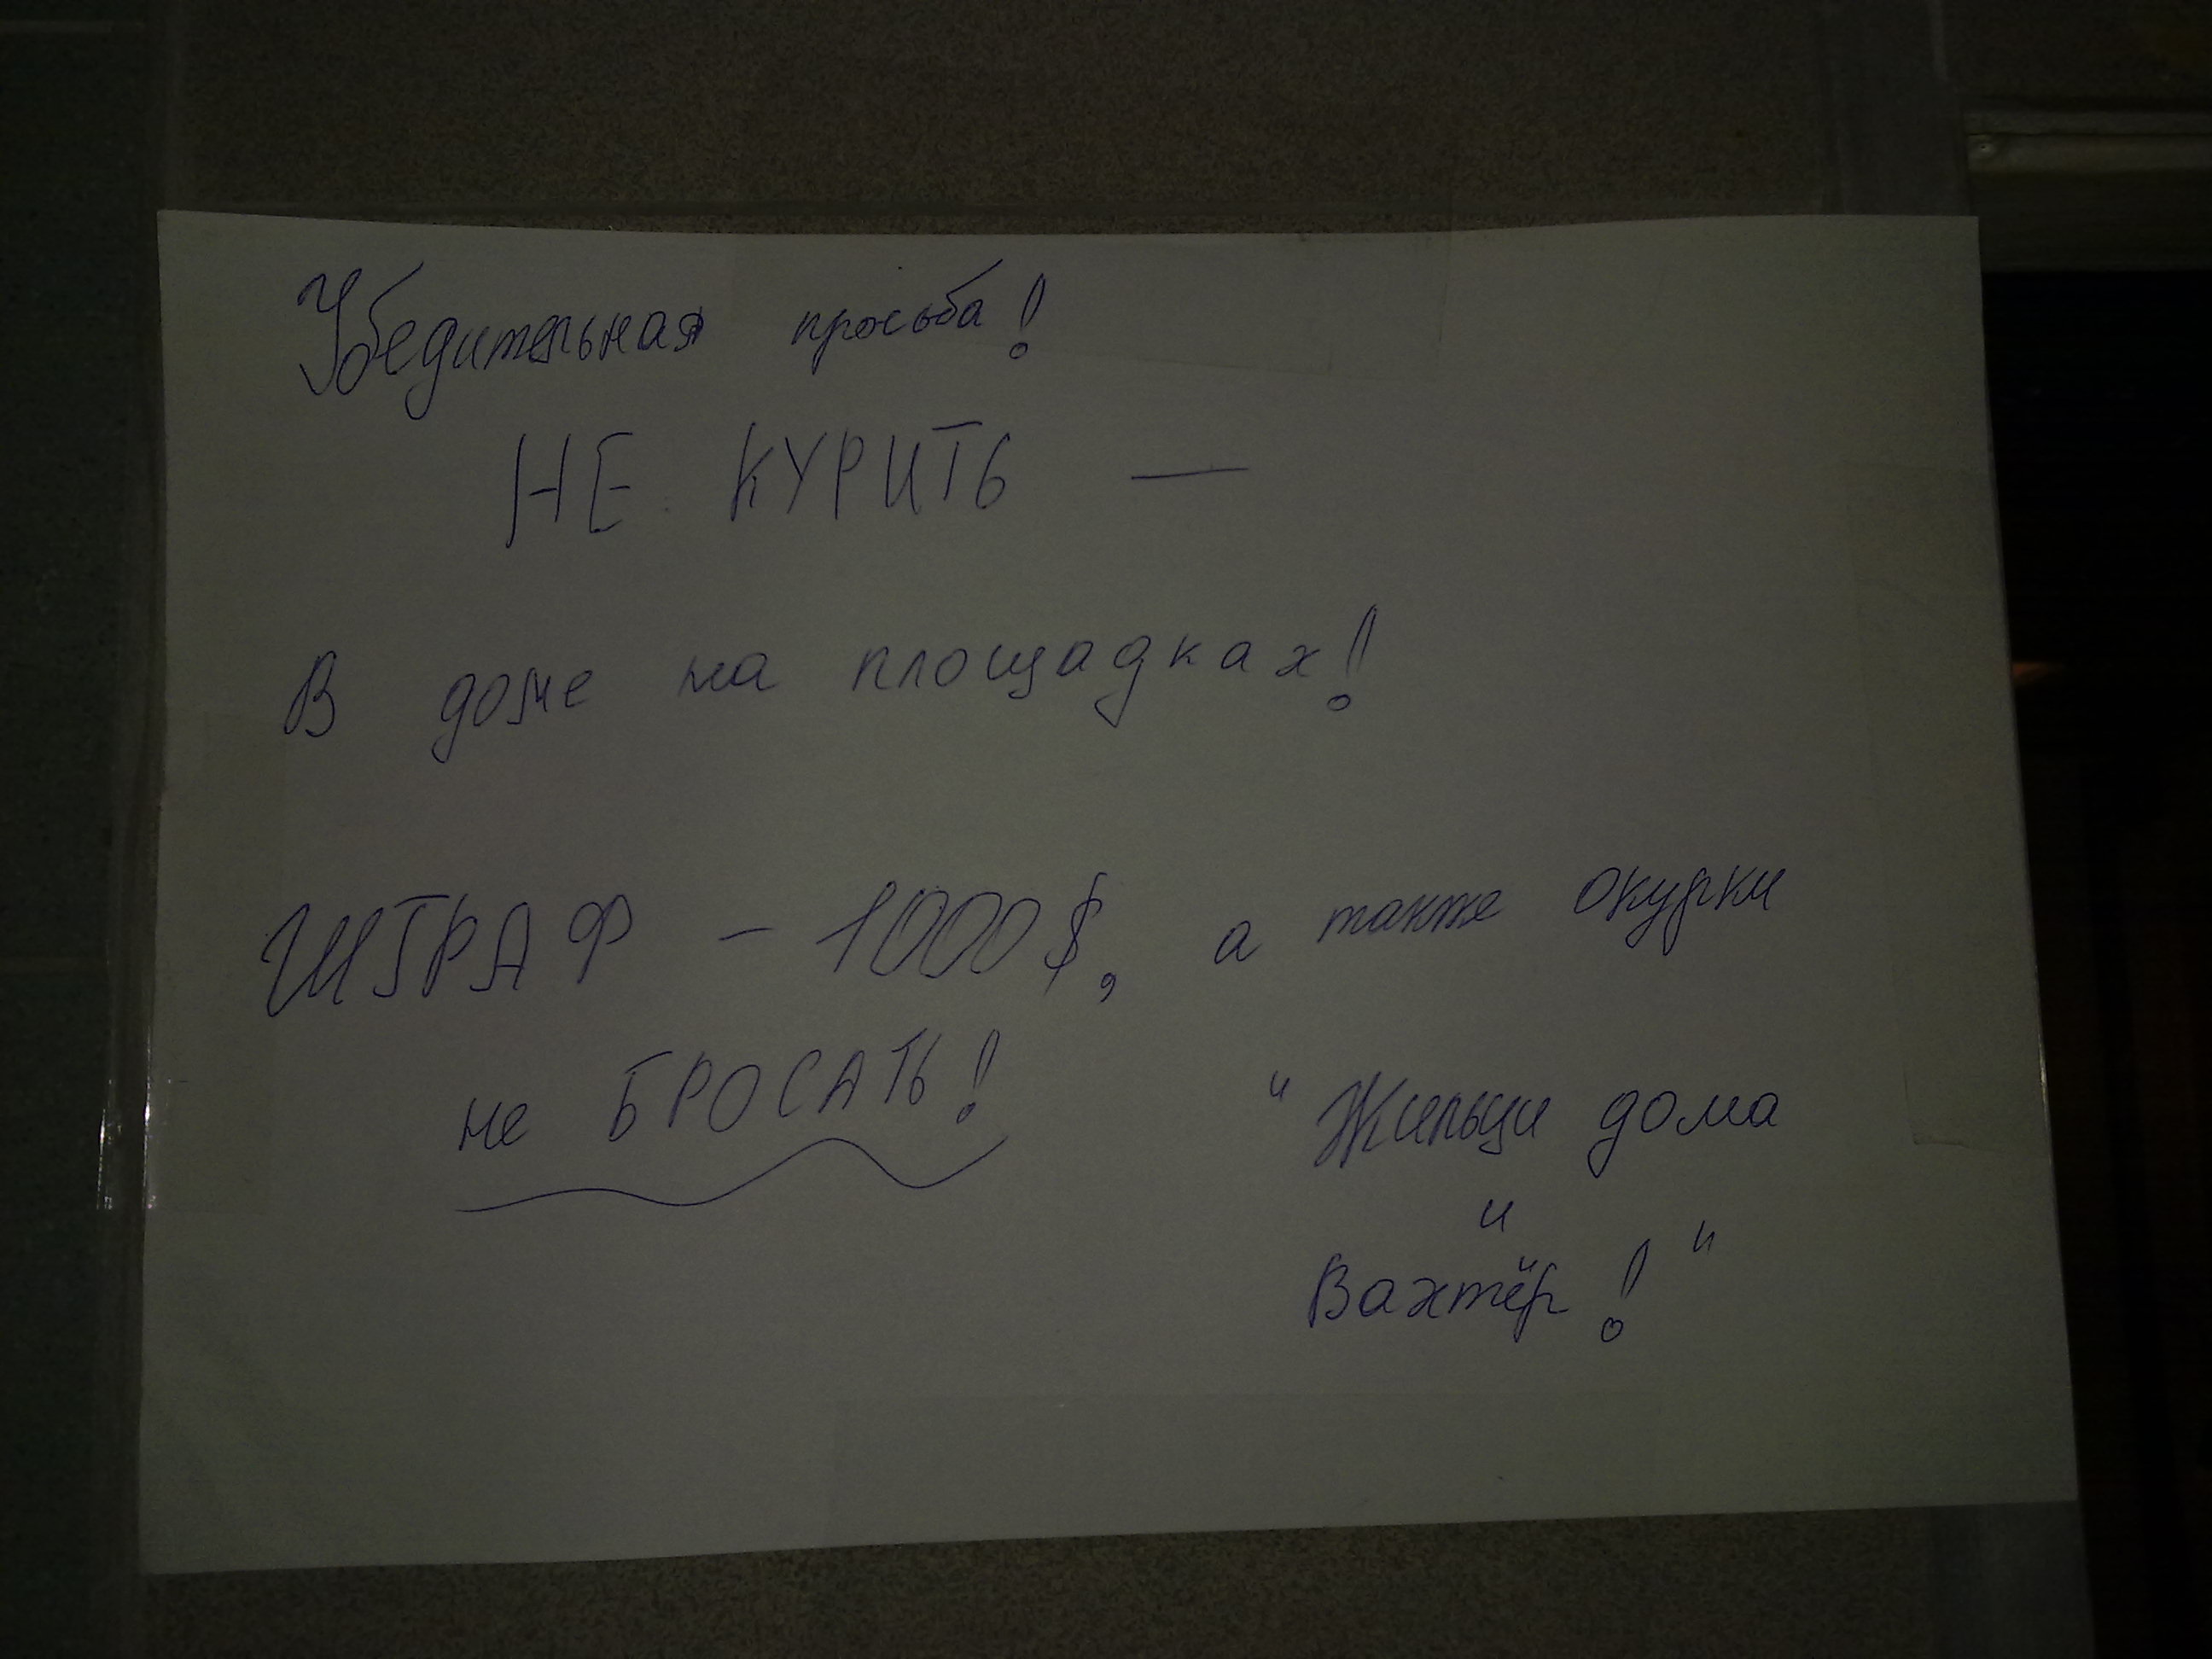 Убедительная просьба!
НЕ КУРИТЬ —
В доме на площадках!
ШТРАФ - 1000$, а также окурки
не БРОСАТЬ!
"Жильци дома
и
Вахтёр!"